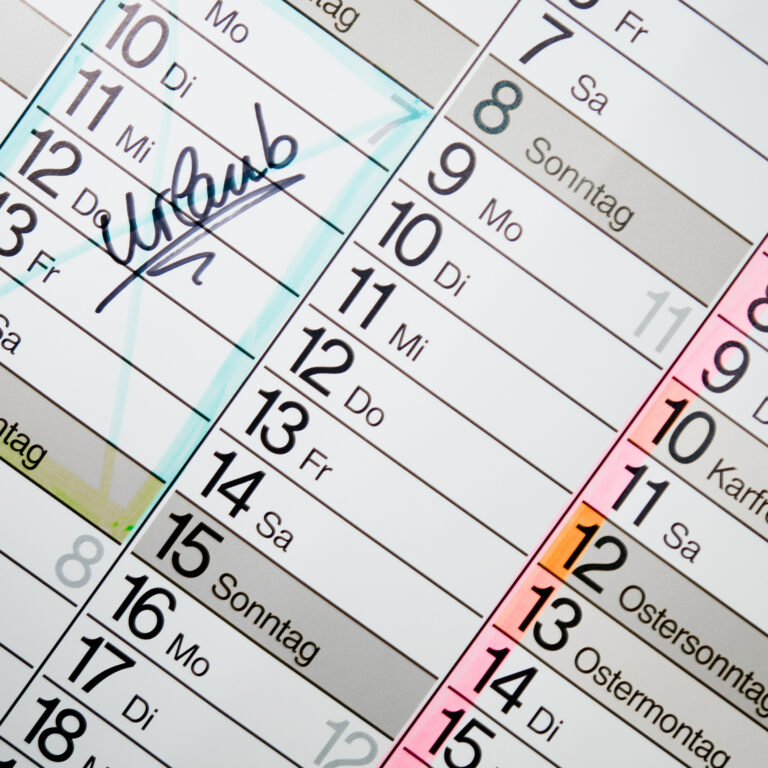 Mo
10 Di
11 Mi
12 Do
13 Fr
Sa
ntag
8
7
Urlaub
tag
7 Sa
8 Sonntag
9 Mo
10 Di
11 Mi
12 Do
13 Fr
14 Sa
15 Sonntag
16 Mo
17 Di
18
11
12
Fr
8
9
10 Karfr
11 Sa
12 Ostersonntag
13 Ostermontag
14 Di
15